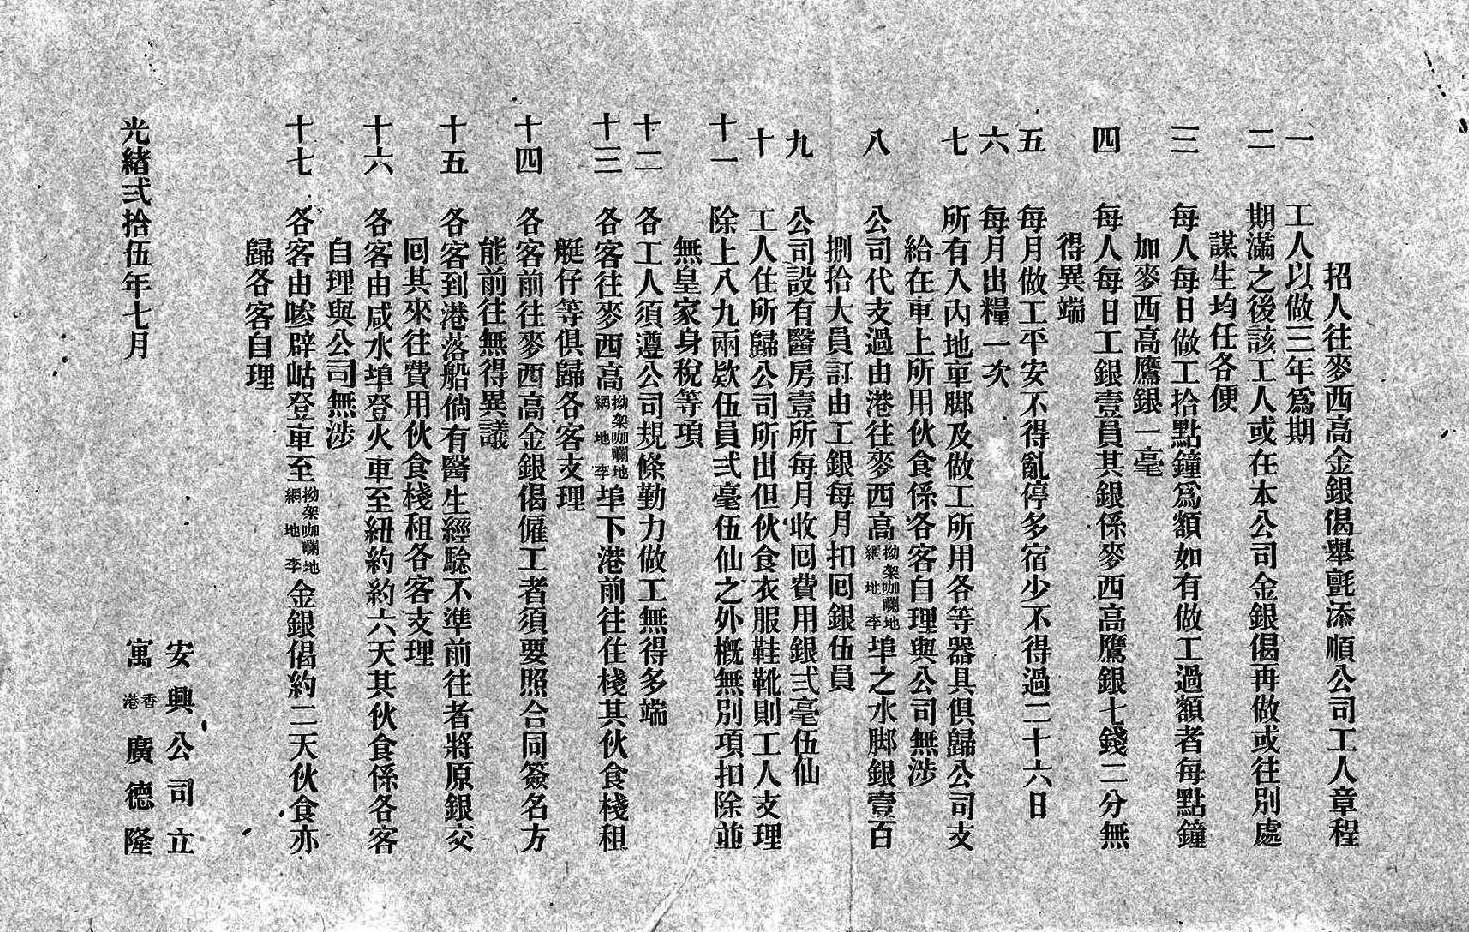 招人往麥西高金銀偈舉氈添順公司工人章程
一 工人以做三年爲期
二 期滿之後該工人或在本公司金銀偈再做或往別處
謀生均任各便
三 每人每日做工拾點鐘爲額如有做工過額者每點鐘
加麥西高鷹銀一毫
四 每人每日工銀壹員其銀係麥西高鷹銀七錢二分無
得異端
五 每月做工平安不得亂停多宿少不得過二十六日
六 每月出糧一次
七 所有入內地車脚及做工所用各等器具俱歸公司支
給在車上所用伙食係各客自理與公司無涉
八 公司代支過由港往麥西高拗架咖囒地網地李埠之水脚銀壹百
捌拾大員訂由工銀每月扣囘銀伍員
九 公司設有醫房壹所每月收囘費用銀弍毫伍仙
十 工人住所歸公司所出但伙食衣服鞋靴則工人支理
十一 除上八九兩欵伍員弍毫伍仙之外概無別項扣除並
無皇家身稅等項
十二 各工人須遵公司規條勤力做工無得多端
十三 各客往麥西高拗架咖囒地網地李埠下港前往住棧其伙食棧租
艇仔等俱歸各客支理
十四 各客前往麥西高金銀偈僱工者須要照合同簽名方
能前往無得異議
十五 各客到港落船倘有醫生經騐不準前往者將原銀交
囘其來往費用伙食棧租各客支理
十六 各客由咸水埠登火車至紐約約六天其伙食係各客
自理與公司無涉
十七 各客由嘇辟咕登車至拗架咖囒地網地李金銀偈約二天伙食亦
歸各客自理
光緒弍拾伍年七月
安興公司立
寓香港廣德隆